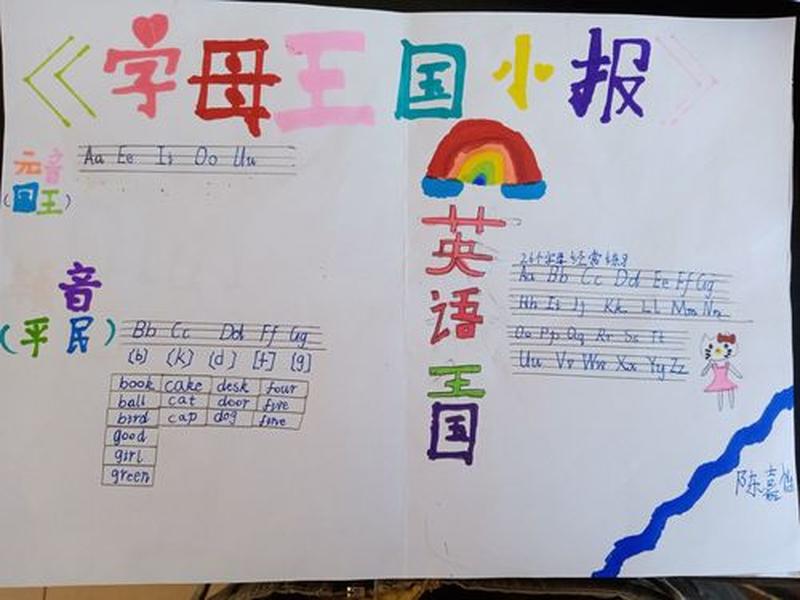 《字母王国小报》
元音
(国王)
Aa Ee Ii Oo Uu
辅音
(平民)
Bb Cc Dd Ff Gg
[b] [k] [d] [f] [g]
book cake desk four
ball cat door five
bird cap dog fine
good
girl
green
英语王国
26个字母经常练习
Aa Bb Cc Dd Ee Ff Gg
Hh Ii Jj Kk Ll Mm Nn
Oo Pp Qq Rr Ss Tt
Uu Vv Ww Xx Yy Zz
陈嘉